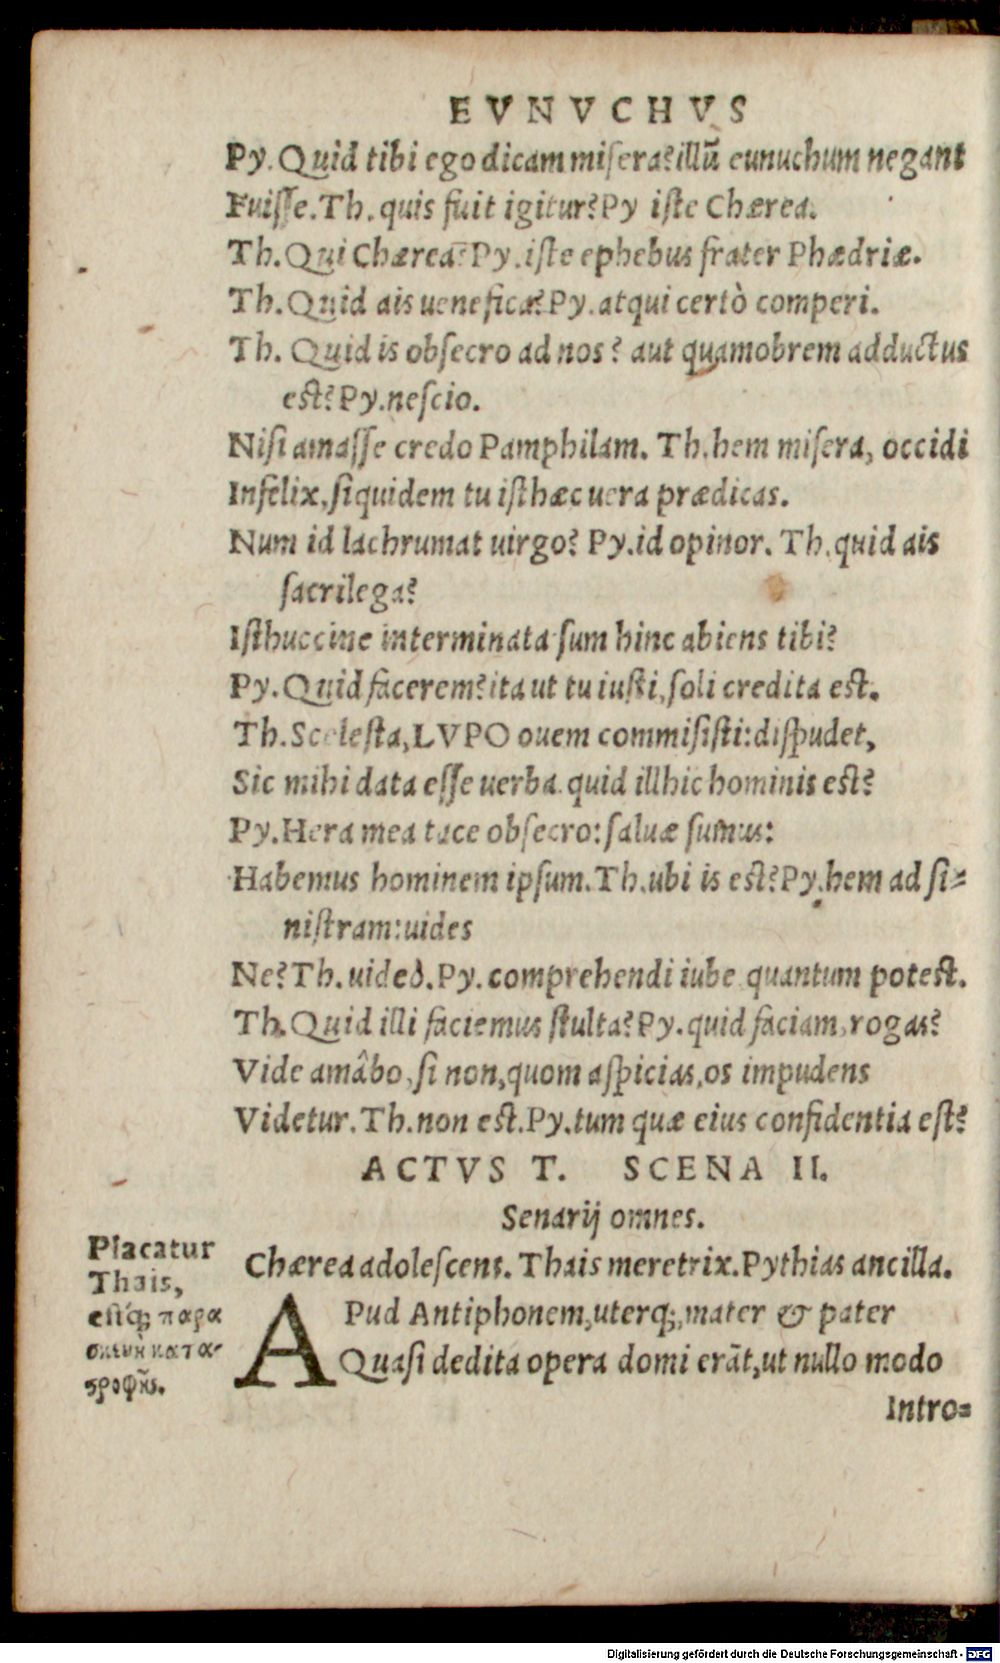 EVNVCHVS
Py. Quid tibi ego dicam misera? illũ eunuchum negant
Fuisse. Th. quis fuit igitur? Py iste Chærea.
Th. Qui Chærea? Py. iste ephebus frater Phædriæ.
Th. Quid ais uenefica? Py. atqui certò comperi.
Th. Quid is obsecro ad nos? aut quamobrem adductus
est? Py. nescio.
Nisi amasse credo Pamphilam. Th. hem misera, occidi
Infelix, siquidem tu isthæc uera prædicas.
Num id lachrumat uirgo? Py. id opinor. Th. quid ais
sacrilega?
Isthuccine interminata sum hinc abiens tibi?
Py. Quid facerem? ita ut tu iusti, soli credita est.
Th. Scelesta, LVPO ouem commisisti: dispudet,
Sic mihi data esse uerba. quid illhic hominis est?
Py. Hera mea tace obsecro: saluæ sumus:
Habemus hominem ipsum. Th. ubi is est? Py. hem ad si=
nistram: uides
Ne? Th. uideo. Py. comprehendi iube quantum potest.
Th. Quid illi faciemus stulta? Py. quid faciam, rogas?
Vide amâbo, si non, quom aspicias, os impudens
Videtur. Th. non est. Py. tum quæ eius confidentia est?
ACTVS T. SCENA II.
Senarij omnes.
Placatur
Thais,
estq́; παρα
σκευὴ κατα-
ϛροφῆς.
Chærea adolescens. Thais meretrix. Pythias ancilla.
APud Antiphonem, uterq;, mater & pater
Quasi dedita opera domi erãt, ut nullo modo
Intro=
Digitalisierung gefördert durch die Deutsche Forschungsgemeinschaft - DFG